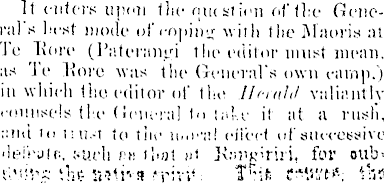 It enters upon the question of the Gene-
ral's best mode of coping with the Maoris at
Te Rore (Paterangi the editor must mean,
as Te Rore was the General's own camp,)
in which the editor of the Herald valiantly
counsels the General to take it at a rush,
and to trust to the moral effect of successive
defeats, such as that at Rangiriri, for sub-
duing the native spirit. This course, the